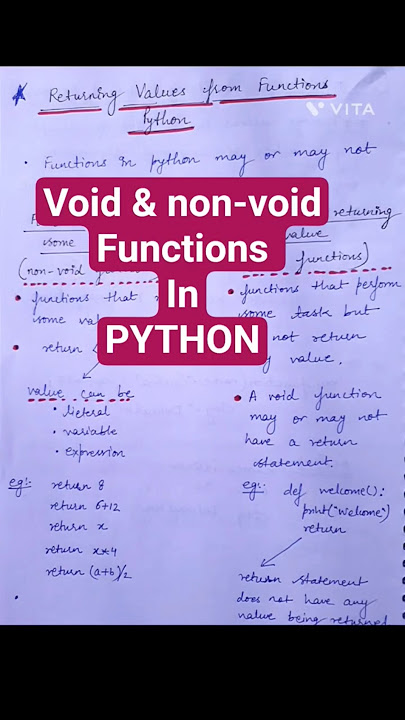 Returning Values from Functions
VITA
Python
• Functions in python may or may not
Void & non-void
Functions
In
PYTHON
some
(non-void
• functions that
some
• return
value can be
• literal
• variable
• expression
eg:- return 8
return 6+12
return x
return x**4
return (a+b)/2
returning
value
functions)
• functions that perform
some task but
not return
value.
• A void function
may or may not
have a return
statement.
eg:- def welcome():
print("Welcome")
return
return statement
does not have any
value being returned